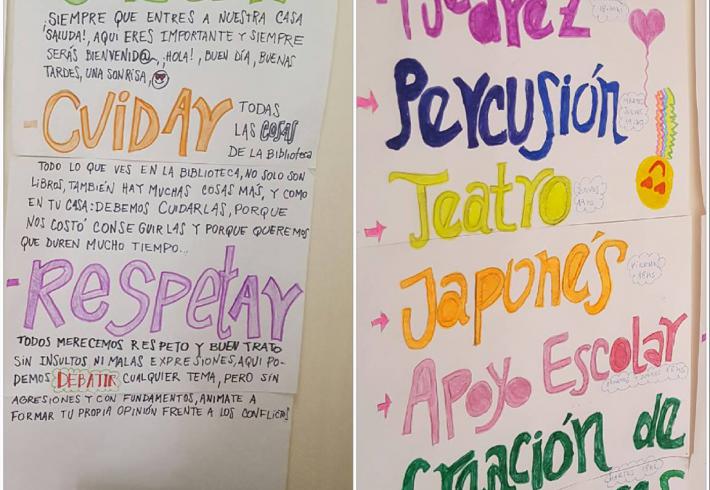 ¡SIEMPRE QUE ENTRES A NUESTRA CASA
¡SALUDA!, AQUI ERES IMPORTANTE Y SIEMPRE
SERÁS BIENVENID@, ¡HOLA!, BUEN DÍA, BUENAS
TARDES, UNA SONRISA,
-CUIDAR TODAS
LAS COSAS
DE LA BIbliotECA
TODO LO QUE VES EN LA BIBLIOTECA, NO SOLO SON
LIBROS, TAMBIÉN HAY MUCHAS COSAS MAS, Y COMO
EN TU CASA: DEBEMOS CUIDARLAS, PORQUE
NOS COSTÓ CONSEGUIRLAS Y PORQUE QUEREMOS
QUE DUREN MUCHO TIEMPO...
-RESPEtAR
TODOS MERECEMOS RESPETO Y BUEN TRATO
SIN INSULTOS NI MALAS EXPRESIONES, AQUI PO-
DEMOS DEBATIR CUALQUIER TEMA, PERO SIN
AGRESIONES Y CON FUNDAMENTOS, ANIMATE A
FORMAR TU PROPIA OPINIÓN FRENTE A LOS CONFLICTOS
Percusión
Teatro
Japonés
VIERNES
18HS
Apoyo Escolar
Creación de